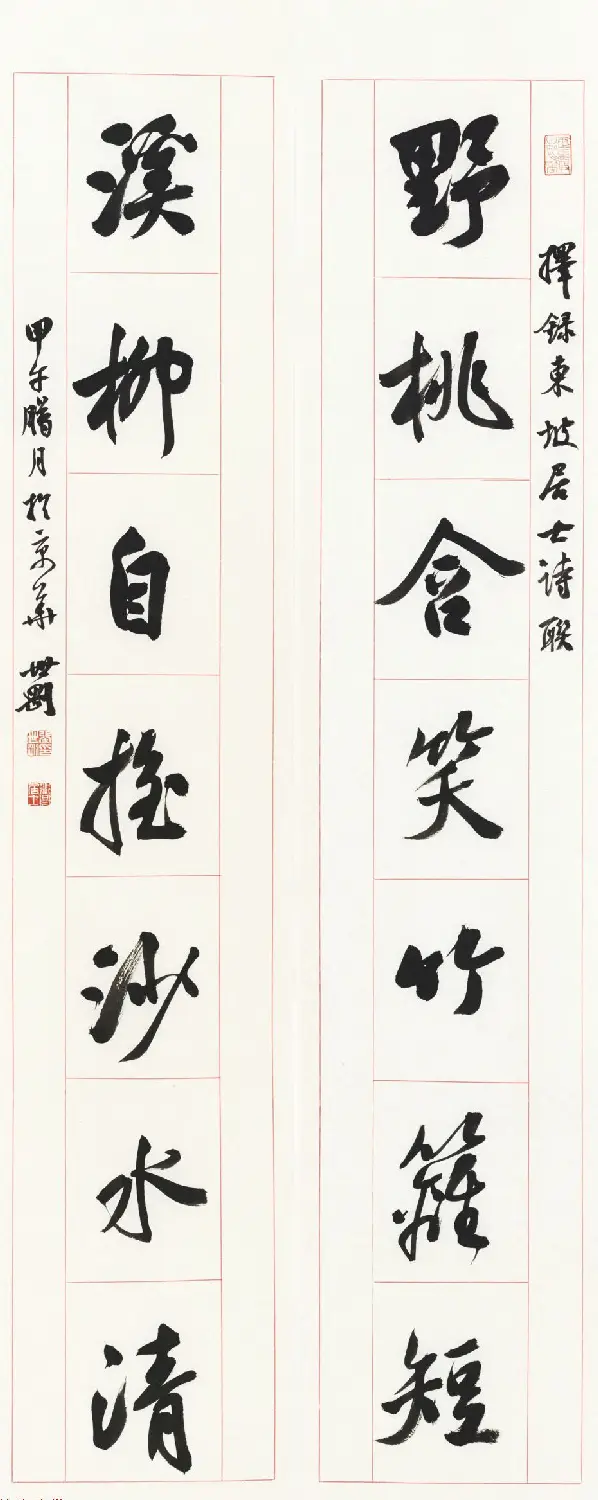 擇録東坡居士诗联
野桃含笑竹籬短
溪柳自摇沙水清
甲午臘月於京華 世剛